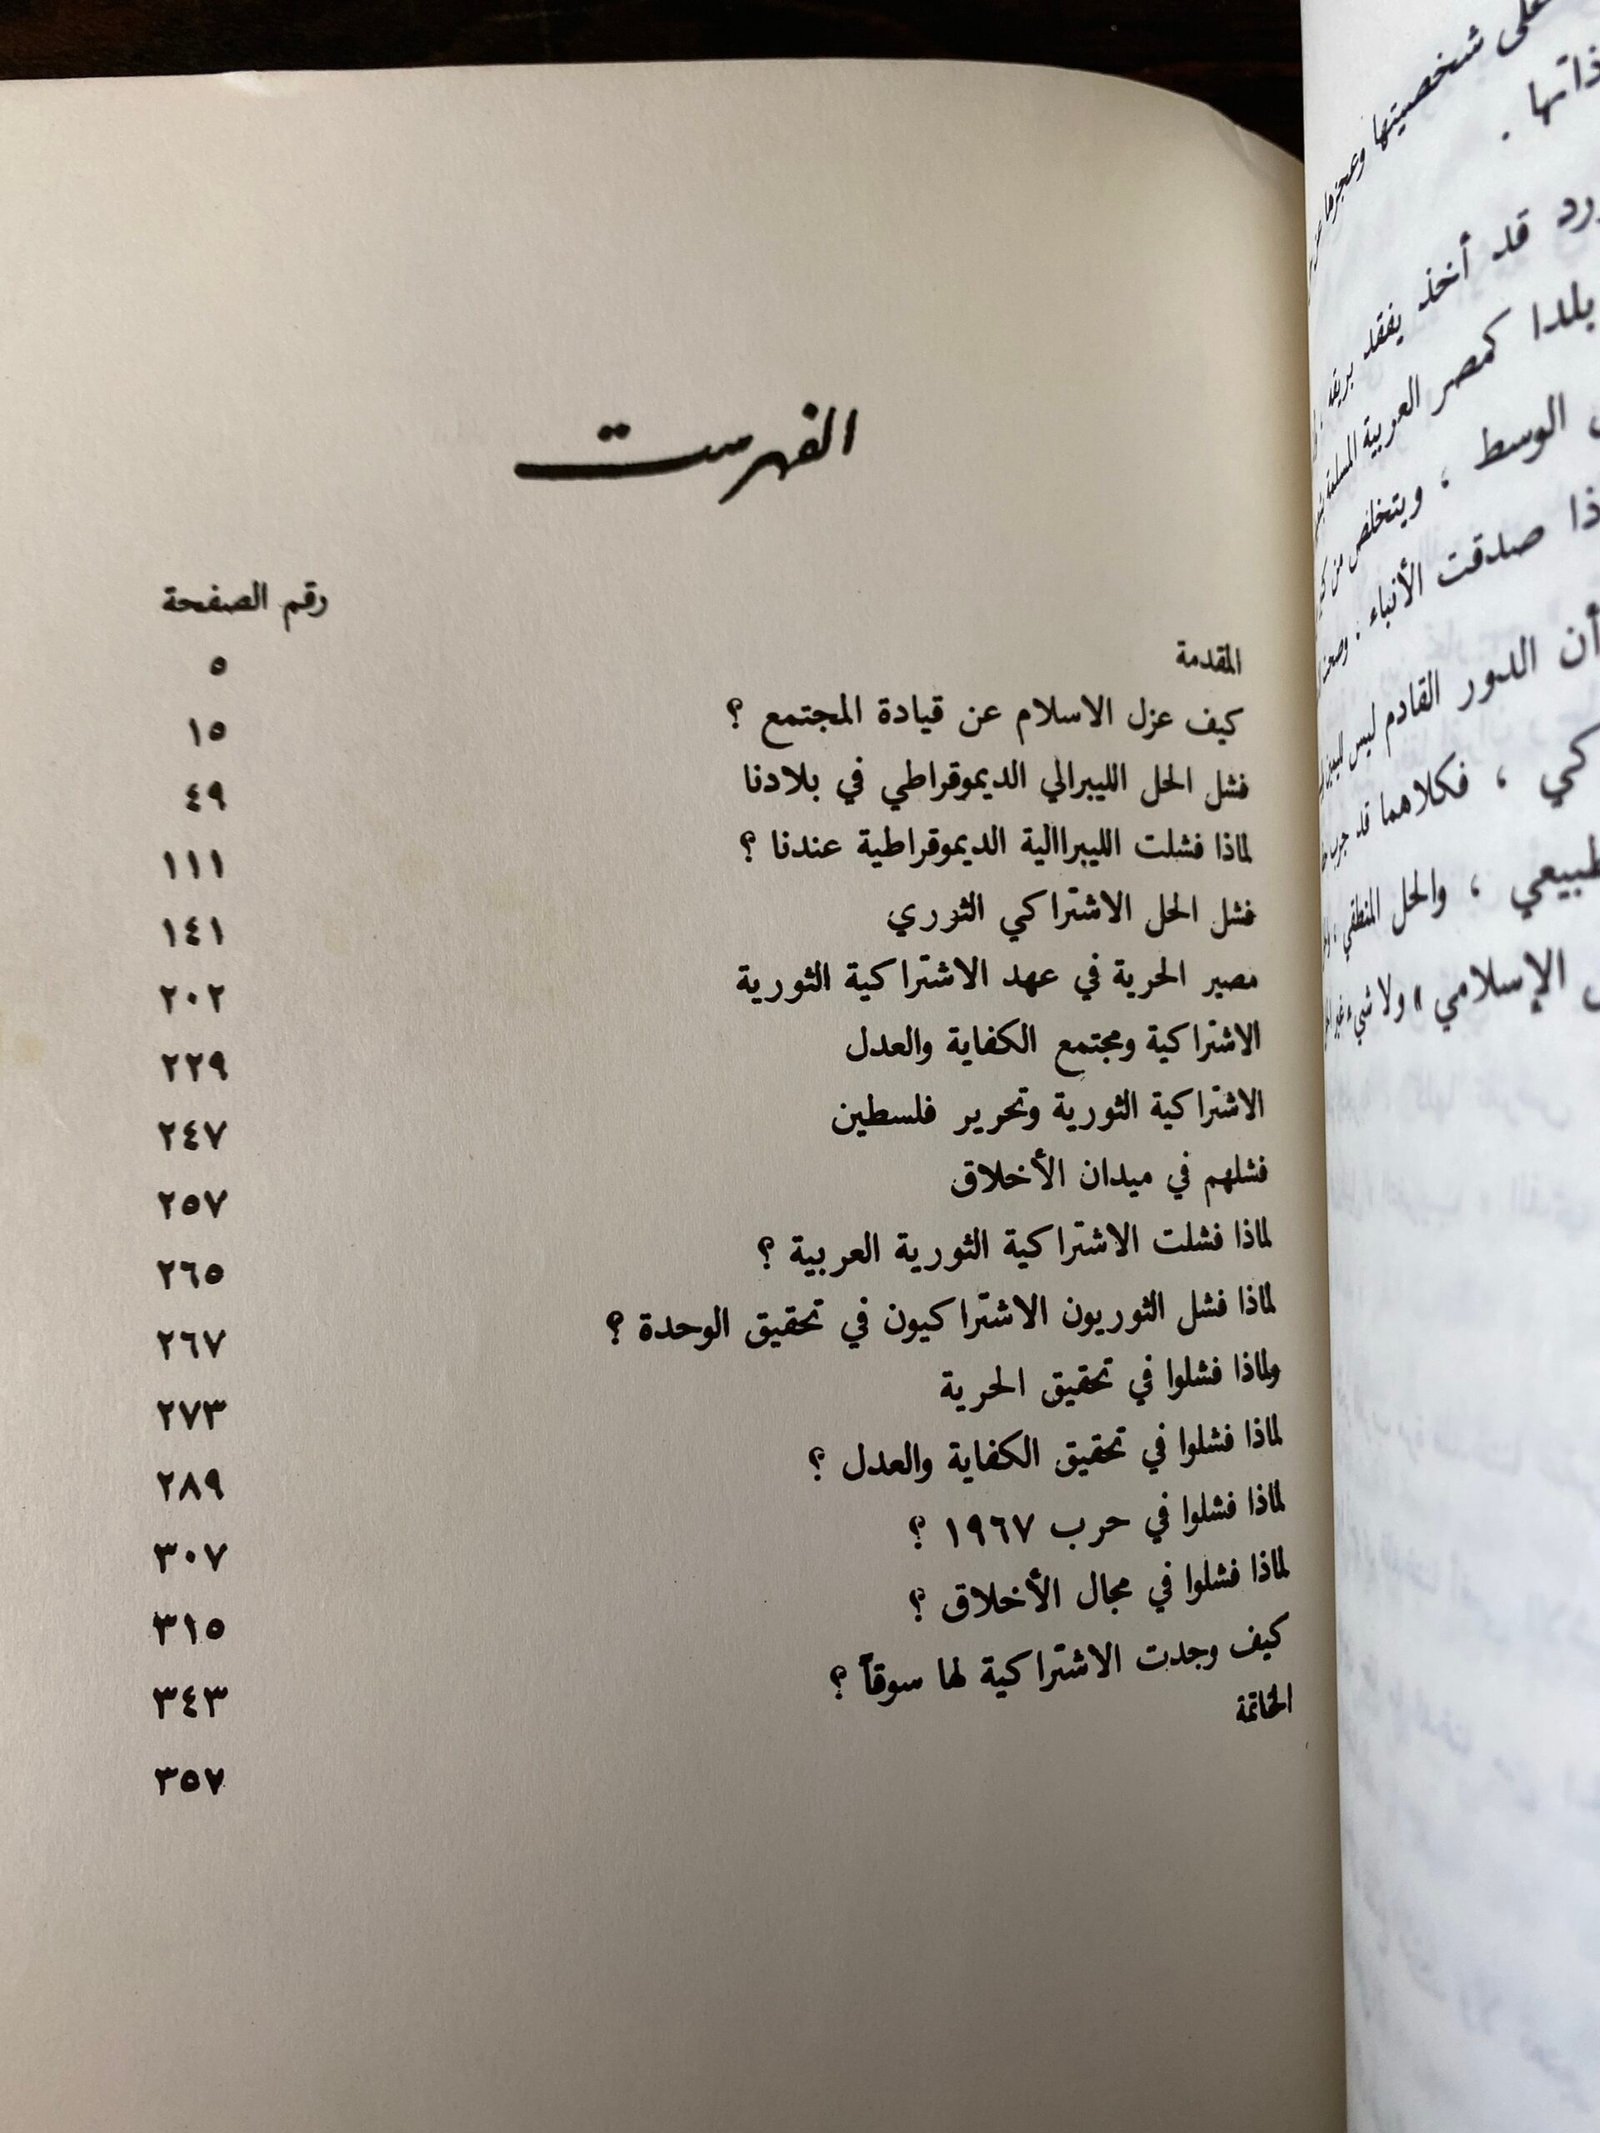 الفهرست
رقم الصفحة
المقدمة ٥
كيف عزل الاسلام عن قيادة المجتمع ؟ ١٥
فشل الحل الليبرالي الديموقراطي في بلادنا ٤٩
لماذا فشلت الليبراالية الديموقراطية عندنا ؟ ١١١
فشل الحل الاشتراكي الثوري ١٤١
مصير الحرية في عهد الاشتراكية الثورية ٢٠٢
الاشتراكية ومجتمع الكفاية والعدل ٢٢٩
الاشتراكية الثورية وتحرير فلسطين ٢٤٧
فشلهم في ميدان الأخلاق ٢٥٧
لماذا فشلت الاشتراكية الثورية العربية ؟ ٢٦٥
لماذا فشل الثوريون الاشتراكيون في تحقيق الوحدة ؟ ٢٦٧
ولماذا فشلوا في تحقيق الحرية ٢٧٣
لماذا فشلوا في تحقيق الكفاية والعدل ؟ ٢٨٩
لماذا فشلوا في حرب ١٩٦٧ ؟ ٣٠٧
لماذا فشلوا في مجال الأخلاق ؟ ٣١٥
كيف وجدت الاشتراكية لها سوقاً ؟ ٣٤٣
الخاتمة ٣٥٧
شخصيتها وعجزها
قد أخذ يفقد بريقه
بلدا كمصر العربية المسلمة
الوسط ، ويتخلص من
صدقت الأنباء .
أن الدور القادم ليس
، فكلاهما قد جرب
، والحل المنطقي ،
الإسلامي » ولا شيء غير